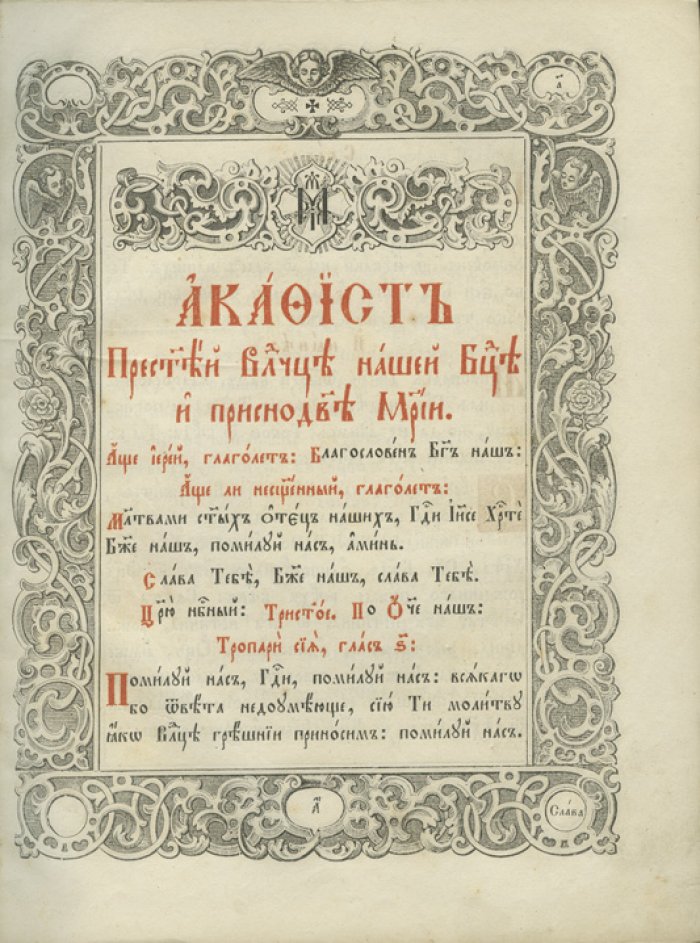 а҃
А҆КА́ѲЇСТЪ
Прест҃ѣ́й влⷣчцѣ на́шей бцⷣѣ
и҆ приснодв҃ѣ мр҃і́и.
А҆́ще і҆ере́й, глаго́летъ: Благослове́нъ бг҃ъ на́шъ:
А҆́ще ли несщ҃е́нный, глаго́летъ:
Мл҃твами ст҃ы́хъ ѻ҆тє́цъ на́шихъ, гдⷭ҇и і҆и҃се хрⷭ҇тѐ
бж҃е на́шъ, поми́луй на́съ, а҆ми́нь.
Сла́ва Тебѣ̀, бж҃е на́шъ, сла́ва Тебѣ̀.
Цр҃ю̀ нбⷭ҇ный: Трист҃о́е. По Ѻ҆́ч҃е на́шъ:
Тропарѝ сїѧ̑, гла́съ ѕ҃:
Поми́луй на́съ, гдⷭ҇и, поми́луй на́съ: всѧ́кагѡ
бо ѿвѣ́та недоумѣ́юще, сїю̀ Ти моли́тву
ꙗ҆́кѡ влⷣцѣ грѣ́шнїи прино́симъ: поми́луй на́съ.
а҃
Сла́ва